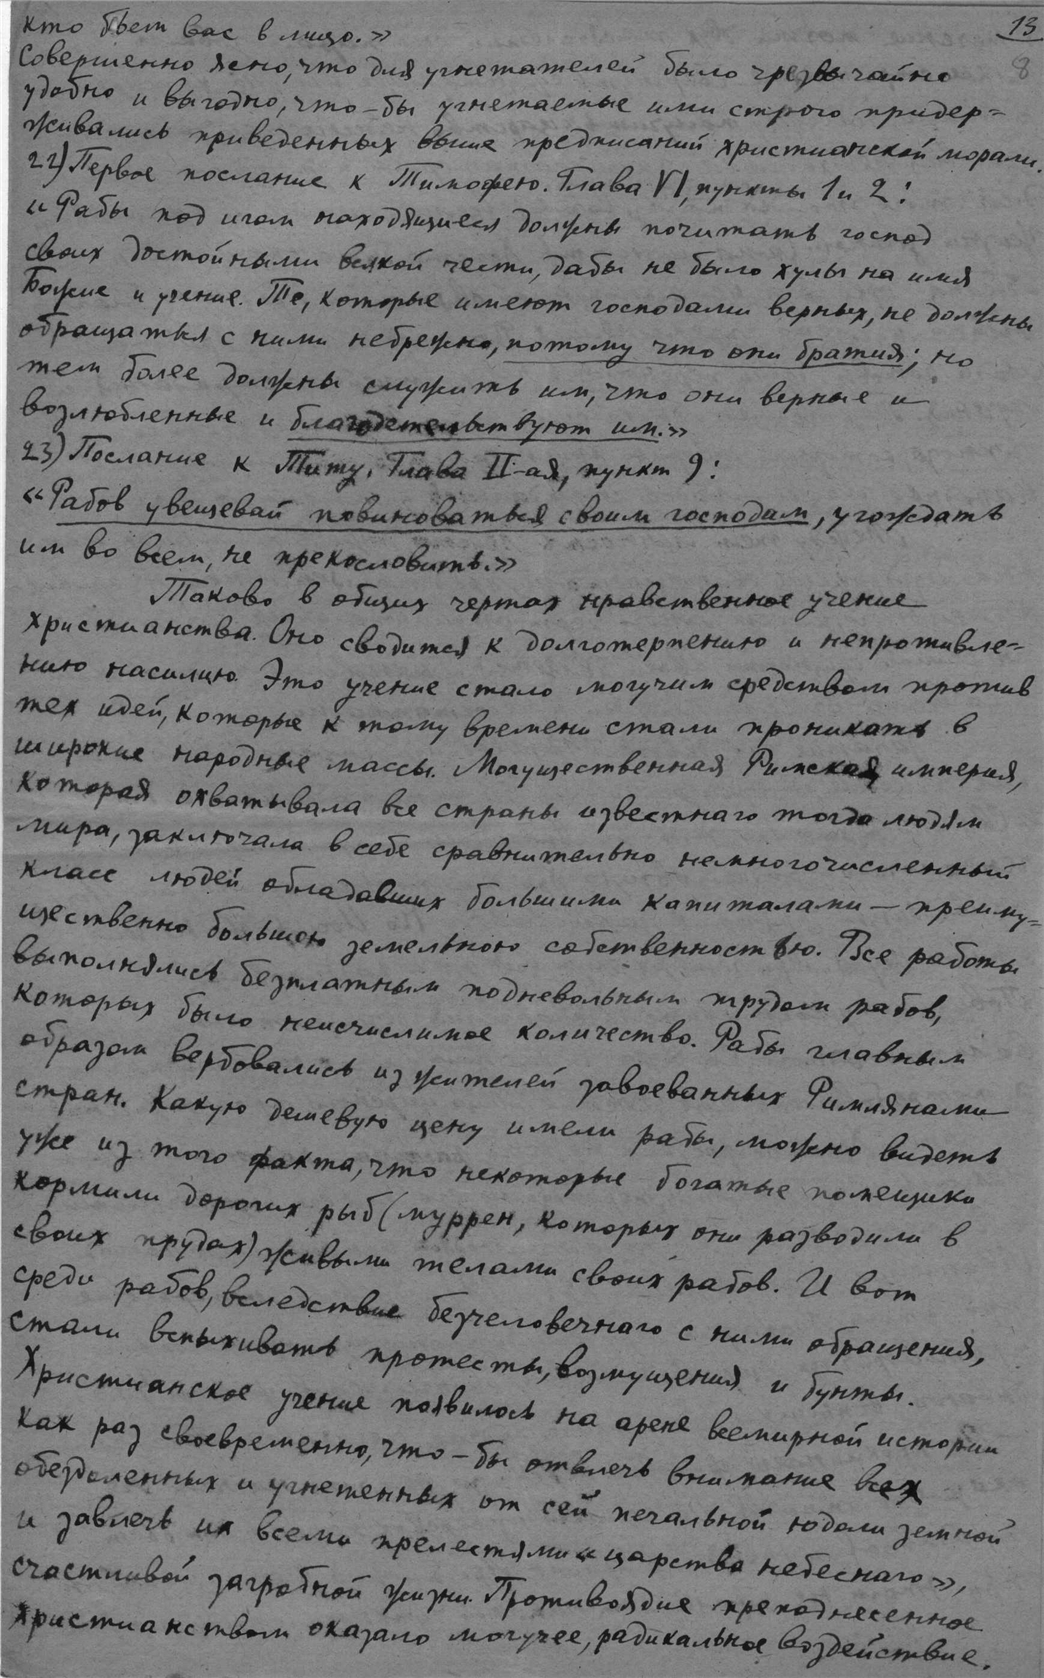 13
8
кто бьет вас в лицо.»
Совершенно ясно, что для угнетателей было чрезвычайно
удобно и выгодно, что-бы угнетаемые ими строго придер=
живались приведенных выше предписаний христианской морали.
22) Первое послание к Тимофею. Глава VI, пункты 1 и 2:
«Рабы под игом находящиеся должны почитать господ
своих достойными всякой чести, дабы не было хулы на имя
Божие и учение. Те, которые имеют господами верных, не должны
обращаться с ними небрежно, потому что они братия; но
тем более должны служить им, что они верные и
возлюбленные и благодетельствуют им.»
23) Послание к Титу. Глава II-ая, пункт 9:
«Рабов увещевай повиноваться своим господам, угождать
им во всем, не прекословить.»
Таково в общих чертах нравственное учение
христианства. Оно сводится к долготерпению и непротивле=
нию насилию. Это учение стало могучим средством против
тех идей, которые к тому времени стали проникать в
широкие народные массы. Могущественная Римская империя,
которая охватывала все страны известнаго тогда людям
мира, заключала в себе сравнительно немногочисленный
класс людей обладавших большими капиталами — преиму=
щественно большою земельною собственностью. Все работы
выполнялись безплатным подневольным трудом рабов,
которых было неисчислимое количество. Рабы главным
образом вербовались из жителей завоеванных Римлянами
стран. Какую дешевую цену имели рабы, можно видеть
уже из того факта, что некоторые богатые помещики
кормили дорогих рыб (муррен, которых они разводили в
своих прудах) живыми телами своих рабов. И вот
среди рабов, вследствие безчеловечнаго с ними обращения,
стали вспыхивать протесты, возмущения и бунты.
Христианское учение появилось на арене всемирной истории
как раз своевременно, что-бы отвлечь внимание всех
обездоленных и угнетенных от сей печальной юдоли земной
и завлечь их всеми прелестями «царства небеснаго»,
счастливой загробной жизни. Противоядие преподнесенное
христианством оказало могучее, радикальное воздействие.